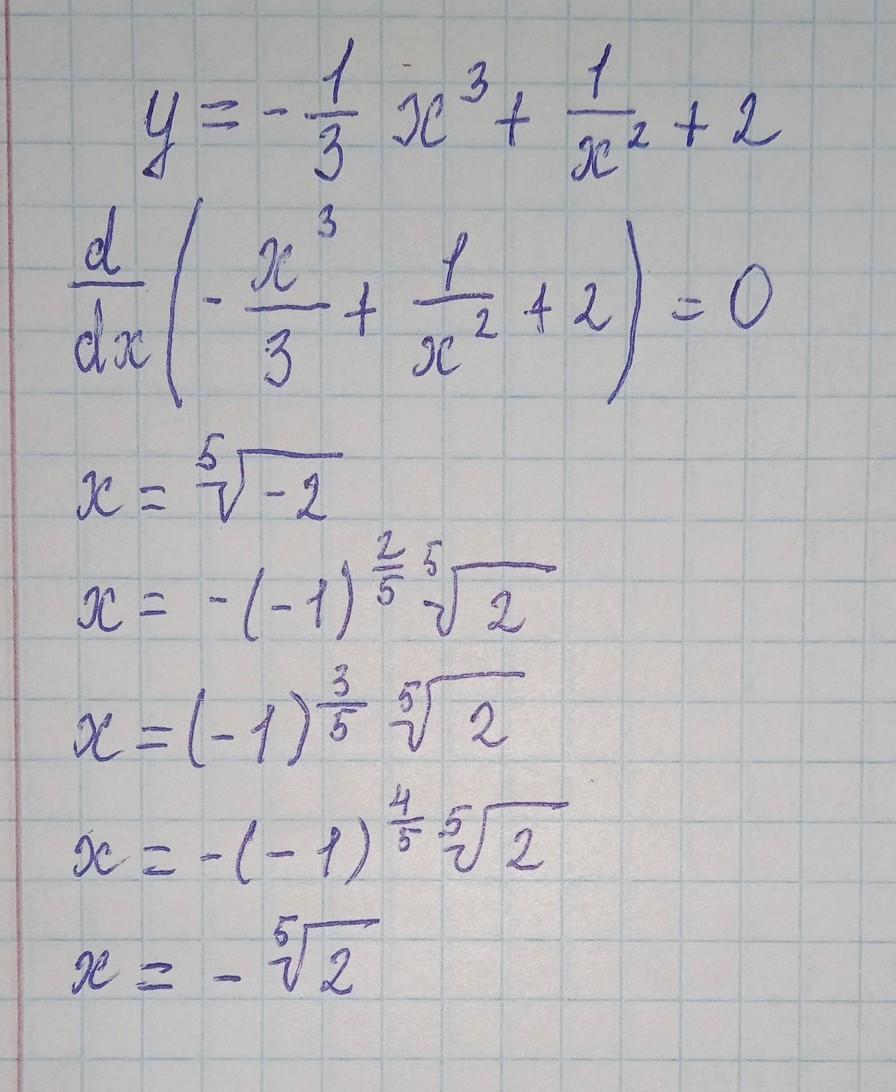 y = - 1/3 x³ + 1/x² + 2
d/dx ( - x³/3 + 1/x² + 2 ) = 0
x = ⁵√-2
x = -(-1)^(2/5) ⁵√2
x = (-1)^(3/5) ⁵√2
x = -(-1)^(4/5) ⁵√2
x = - ⁵√2